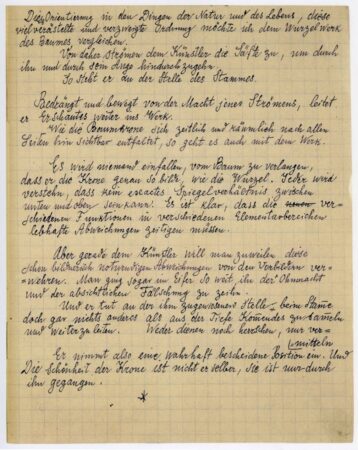 Diese Orientierung in den Dingen der Natur und des Lebens, diese
vielverästelte und verzweigte Ordnung möchte ich dem Wurzelwerk
des Baumes vergleichen.
Von daher strömen dem Künstler die Säfte zu, um durch
ihn und durch sein Auge hindurchzugehn.
So steht er an der Stelle des Stammes.
Bedrängt und bewegt von der Macht jenes Strömens, leitet
er Erschautes weiter ins Werk.
Wie die Baumkrone sich zeitlich und räumlich nach allen
Seiten hin sichtbar entfaltet, so geht es auch mit dem Werk.
Es wird niemand einfallen, vom Baum zu verlangen,
dass er die Krone genau so bilde, wie die Wurzel. Jeder wird
verstehn, dass kein exactes Spiegelverhältnis zwischen
unten und oben sein kann. Es ist klar, dass die ver-
schiedenen Functionen in verschiedenen Elementarbereichen
lebhafte Abweichungen zeitigen müssen.
Aber gerade dem Künstler will man zuweilen diese
schon bildnerisch notwendigen Abweichungen von den Vorbildern ver-
wehren. Man ging sogar im Eifer so weit, ihn der Ohnmacht
und der absichtlichen Fälschung zu zeihn.
Und er tut an der ihm zugewiesenen Stelle beim Stamme
doch gar nichts anderes als aus der Tiefe Kommendes zu sammeln
und weiterzuleiten. Weder dienen noch herrschen, nur ver-
mitteln
Er nimmt also eine wahrhaft bescheidene Position ein. Und
Die Schönheit der Krone ist nicht er selber, sie ist nur durch
ihn gegangen.
*